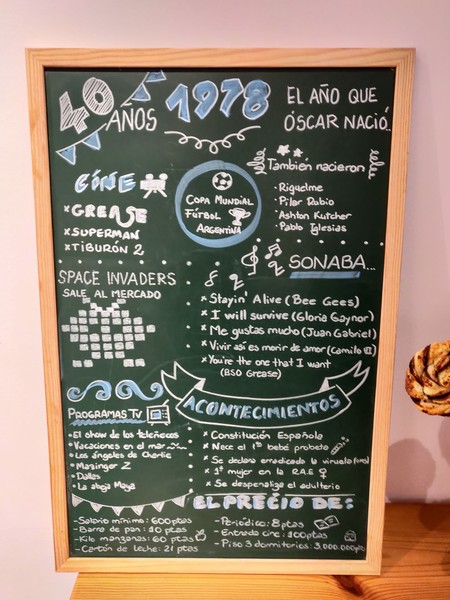 40 AÑOS
1978
EL AÑO QUE
ÓSCAR NACIÓ..
CINE
× GREASE
× SUPERMAN
× TIBURÓN 2
COPA MUNDIAL
FÚTBOL
ARGENTINA
También nacieron
· Riquelme
· Pilar Rubio
· Ashton Kutcher
· Pablo Iglesias
SPACE INVADERS
SALE AL MERCADO
SONABA...
× Stayin' Alive (Bee Gees)
× I will survive (Gloria Gaynor)
× Me gustas mucho (Juan Gabriel)
× Vivir así es morir de amor (Camilo VI)
× You're the one that I want
(BSO Grease)
PROGRAMAS TV
· El show de los teleñecos
· Vacaciones en el mar
· Los ángeles de Charlie
· Mazinger Z
· Dallas
· La abeja Maya
ACONTECIMIENTOS
× Constitución Española
× Nace el 1er bebé probeta
× Se declara erradicada la viruela
× 1ª mujer en la R.A.E
× Se despenaliza el adulterio
EL PRECIO DE:
- Salario mínimo: 600 ptas
- Barra de pan: 10 ptas
- Kilo manzanas: 60 ptas
- Cartón de leche: 21 ptas
- Periódico: 8 ptas
- Entrada cine: 100 ptas
- Piso 3 dormitorios: 3.000.000 ptas